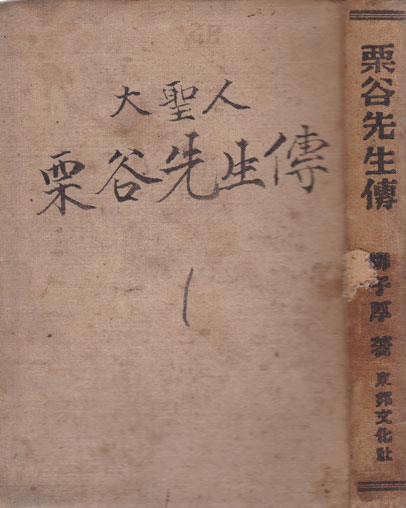 大聖人
栗谷先生傳
栗谷先生傳
柳子厚 著
東邦文化社